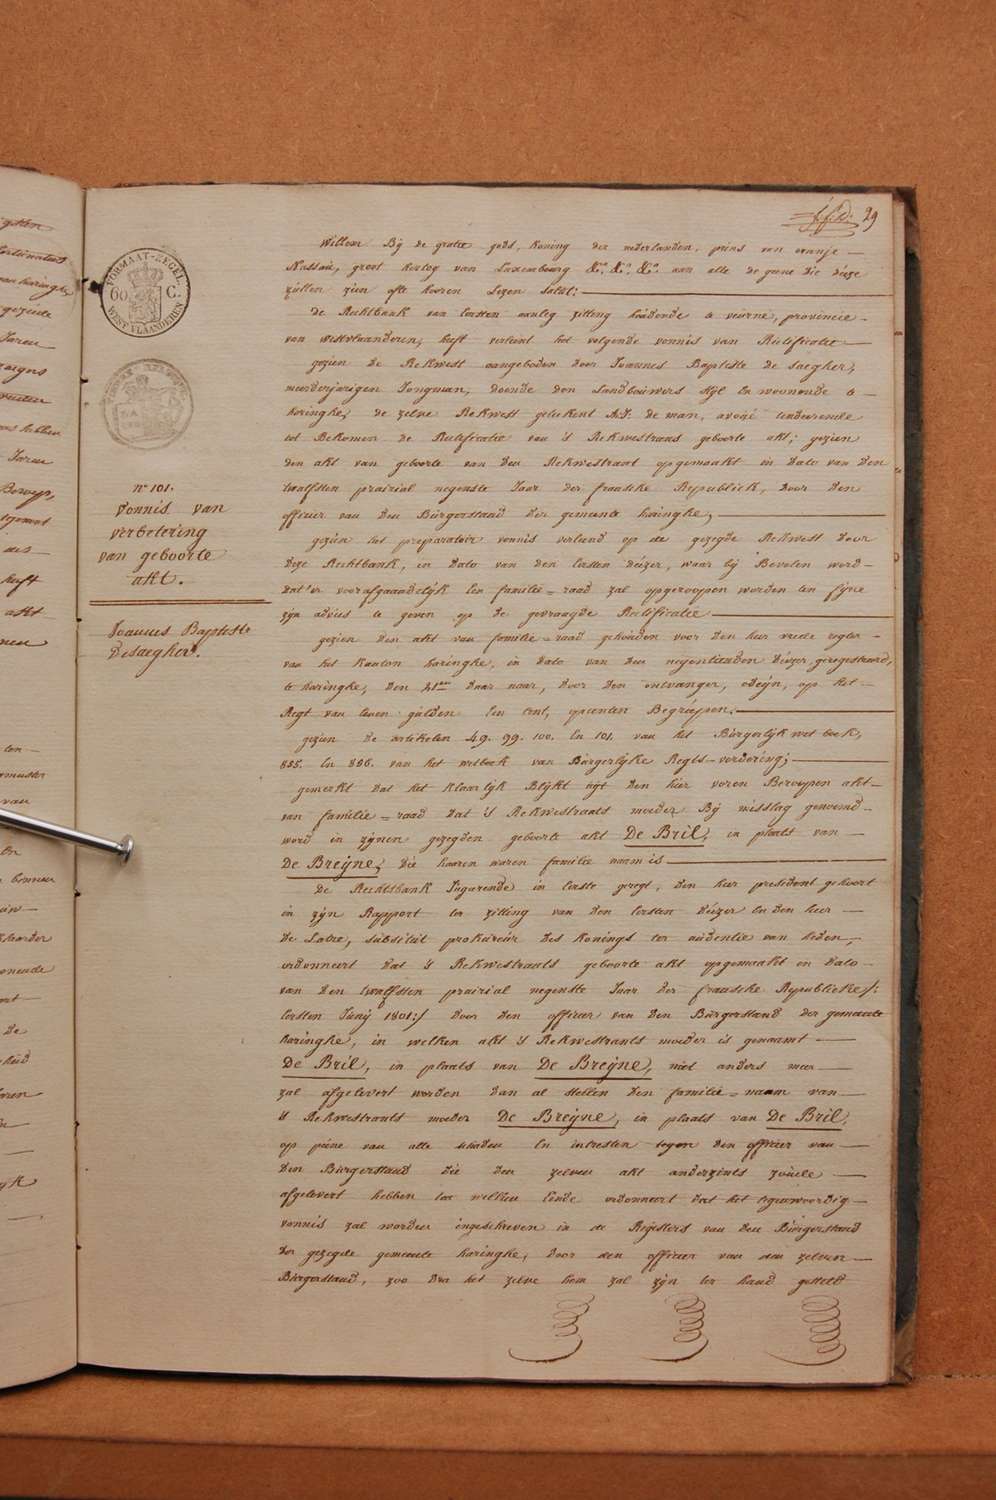 29
FORMAAT-ZEGEL
60 C.
WEST VLAANDEREN
n° 101.
Vonnis van
verbetering
van geboorte
akt.
Joannes Baptiste
Desaegher.
Willem Bij de gratie gods, koning der nederlanden, prins van oranje
Nassau, groot hertog van Luxembourg &a, &a, &a. aan alle de geene die deeze
zullen zien ofte hooren Lezen salut:
De Rechtbank van Eersten aanleg zitting houdende te veurne, provincie
van westvlaanderen, heeft verleent het volgende vonnis van Rectificatie
gezien de Rekwest aangeboden door Joannes Baptiste de Saegher,
meerderjarigen Jongman, doende den Landbouwers stijl En woonende te
haringhe, de zelve Rekwest geteekent A.J. de man, avoué tendeerende
tot Bekomen de Rectificatie van 's Rekwestrants geboorte akt; gezien
den akt van geboorte van den Rekwestrant opgemaakt in dato van den
twalfsten prairial negenste Jaar der fransche Republiek, door den
officier van den Burgerstand der gemeente haringhe,
gezien het preparatoir vonnis verleend op de gezegde Rekwest door
deze Rechtbank, in dato van den Eersten deizer, waar bij Bevolen word
dat 'er voorafgaandelijk Een familie=raad zal opgeroopen worden ten fijne
zijn advies te geven op de gevraagde Rectificatie
gezien den akt van familie=raad gehouden voor den heer vrede regter
van het kanton haringhe, in dato van den negentienden deizer geregistreerd,
te haringhe, den 21en daar naar, door den ontvanger, odeijn, op het
Regt van Eenen gulden Een Cent, opcenten Begreepen.
gezien de artikelen 49. 99. 100. En 101. van het Burgerlijk wet boek,
855. En 856. van het wetboek van Burgerlijke Regts-vordering;
gemerkt dat het klaarlijk Blijkt uijt den hier voren Beroepen akt
van familie=raad dat 's Rekwestrants moeder Bij misslag genoemd
word in zijnen gezegden geboorte akt De Bril, in plaats van
De Breijne, die haaren waren familie naam is
De Rechtsbank Jugeerende in Eerste gregt, den heer president gehoort
in zijn Rapport ter zitting van den Eersten deizer En den heer
De Latre, substitut prokureur des konings ter audientie van heden,
ordonneert dat 's Rekwestrants geboorte akt opgemaakt in dato
van den twalfsten prairial negenste Jaar der fransche Republieke /:
Eersten Junij 1801:/ door den officier van den Burgerstand der gemeente
haringhe, in welken akt 's Rekwestrants moeder is genaamt
De Bril, in plaats van De Breijne, niet anders meer
zal afgelevert worden dan al stellen den familie=naam van
's Rekwestrants moeder De Breijne, in plaats van De Bril,
op peine van alle schaden En intresten tegen den officier van
den Burgerstand die den zelven akt anderzints zoude
afgelevert hebben tot welken Einde ordonneert dat het tegenwoordig
vonnis zal worden ingeschreven in de Registers van den Burgerstand
der gezegde gemeente haringhe, door den officier van den zelven
Burgerstand, zoo dra het zelve hem zal zijn ter hand gesteld